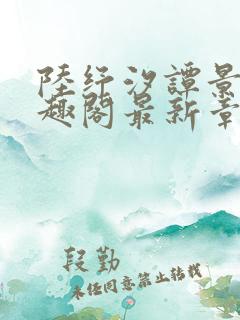 陸紓汐譚景
趣閣最新章
段勤
未经同意禁止转载